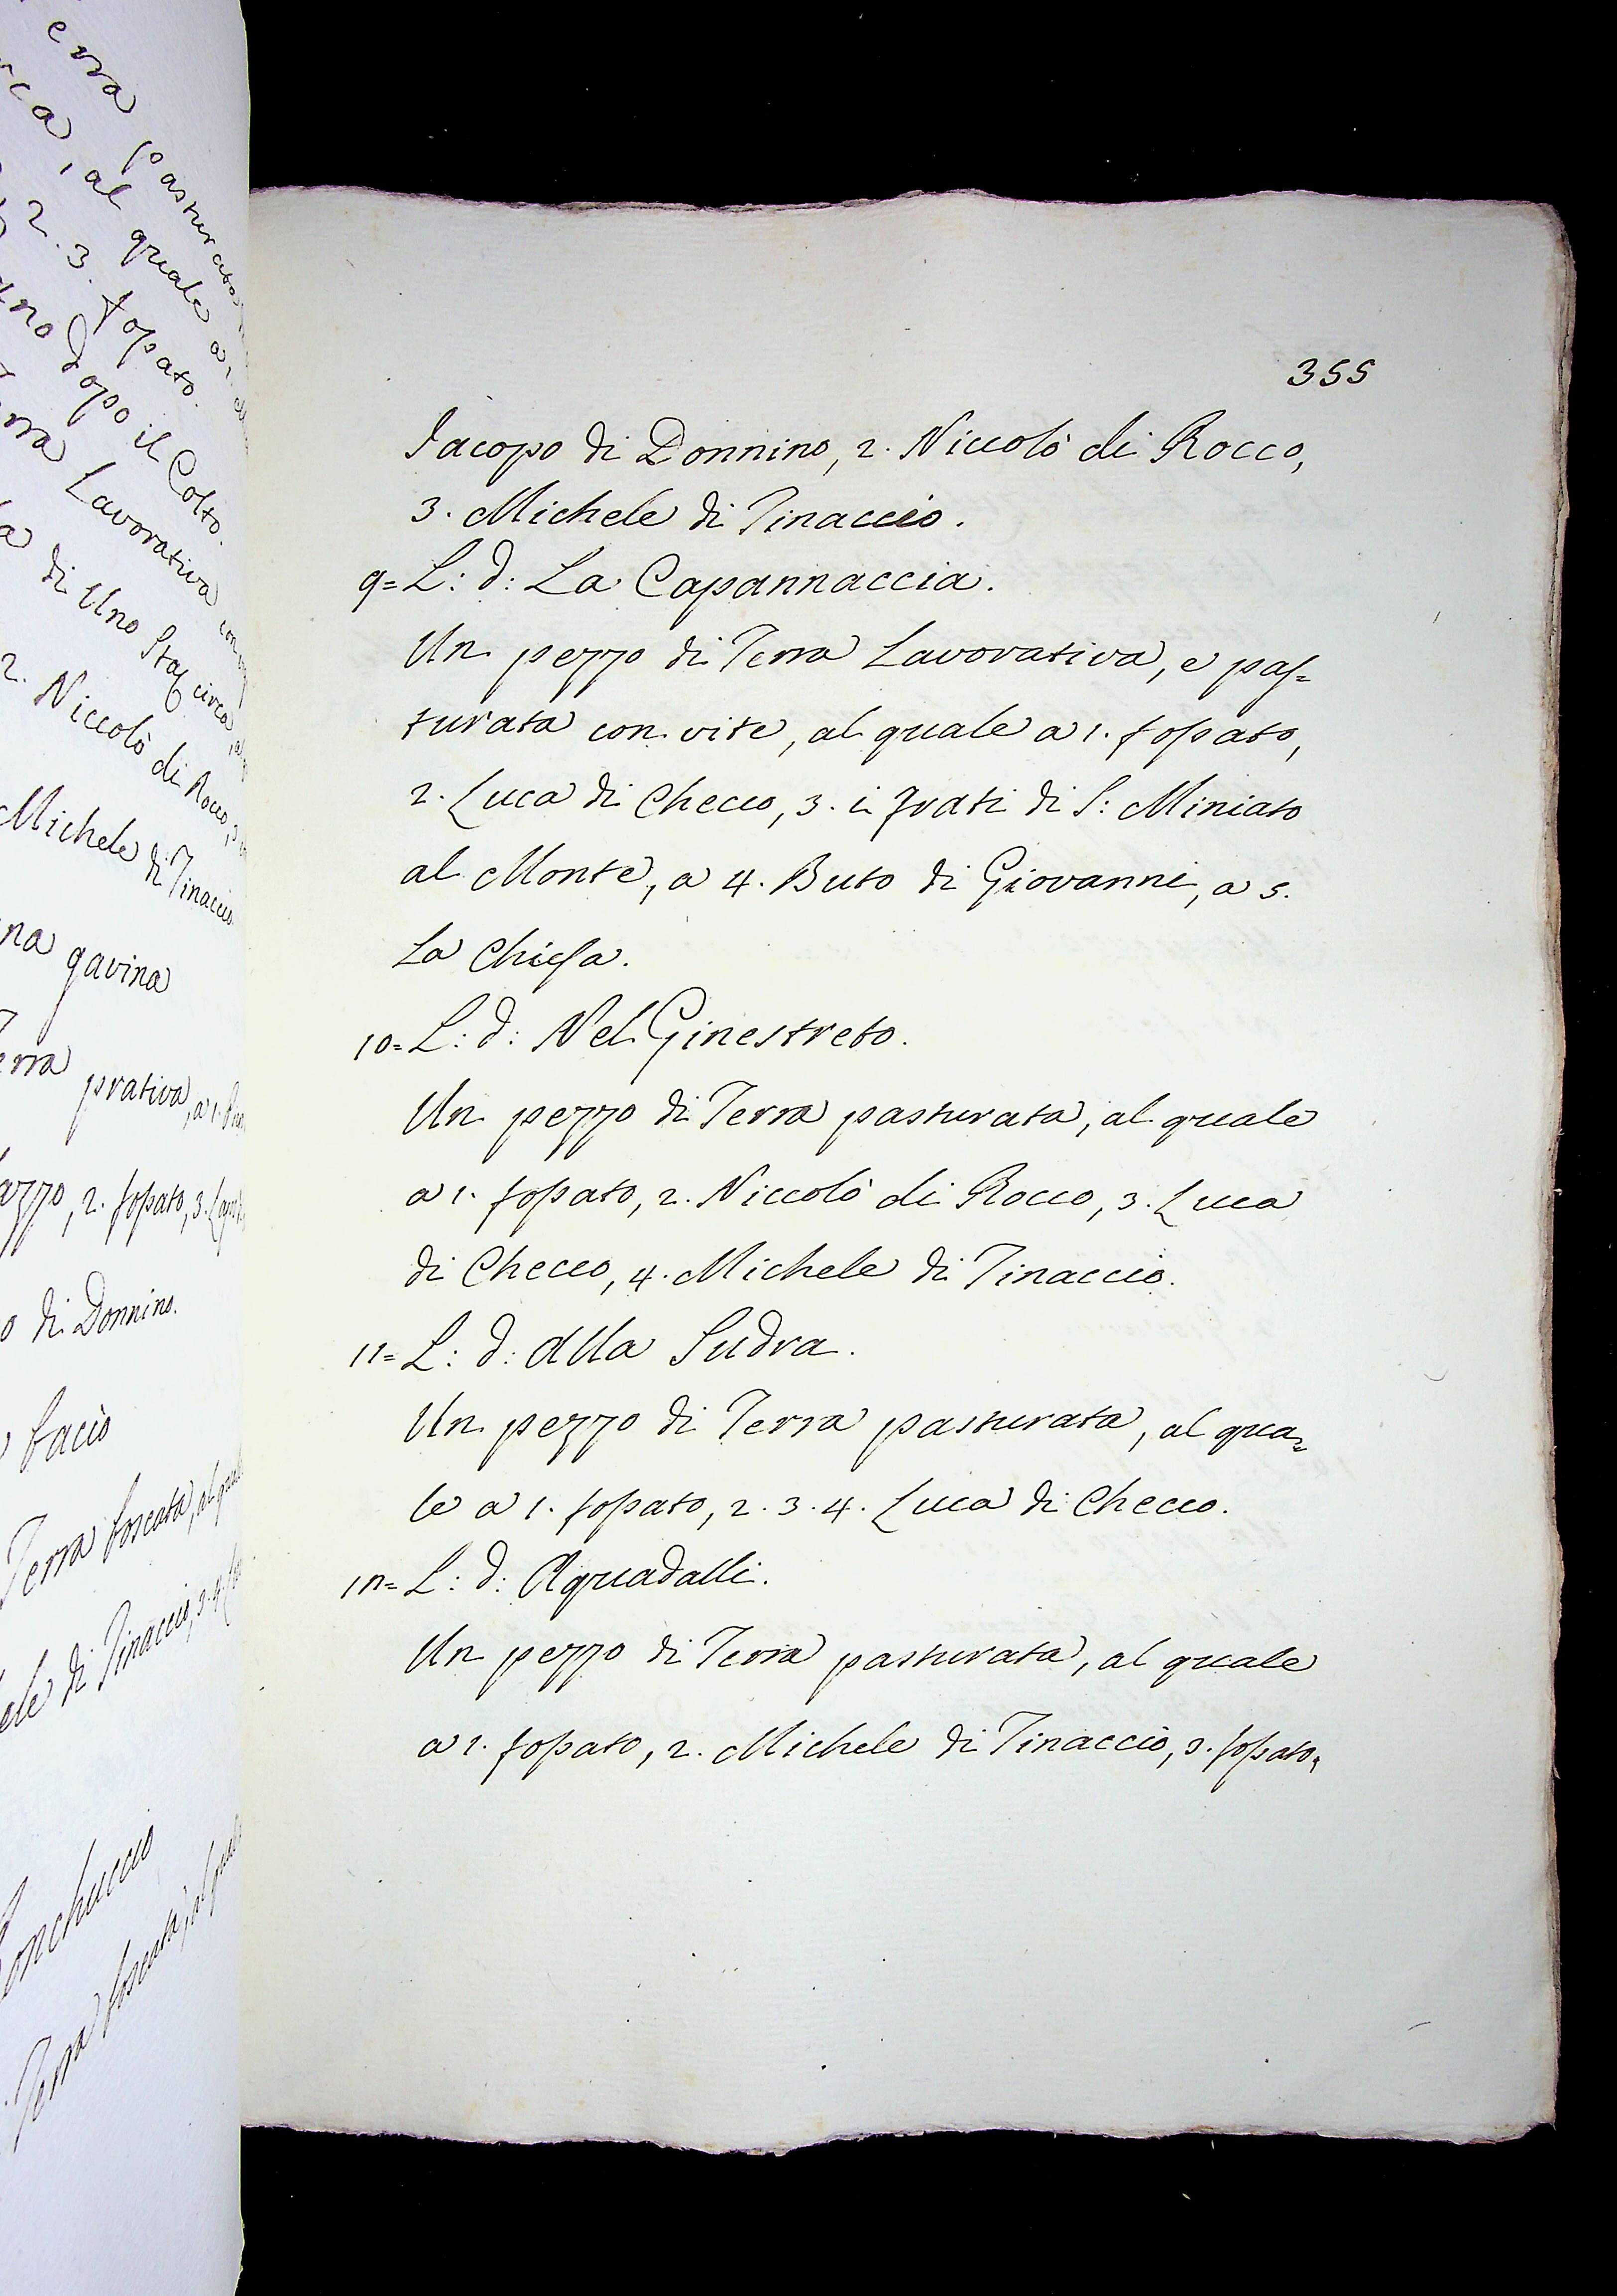 erra pasturata
rca, al quale a 1.
2. 3. fossato.
ano dopo il Colto.
rra Lavorativa con
a di Uno Staf circa
2. Niccolò di Rocco, 3
Michele di Tinaccio
na gavina
erra prativa, a 1.
azzo, 2. fossato, 3.
o di Donnino.
bacìo
Terra boscata, al quale
ele di Tinaccio, 3. 4.
onchuccio
Terra boscata, al quale
355
Jacopo di Donnino, 2. Niccolò di Rocco,
3. Michele di Tinaccio.
9= L: d: La Capannaccia.
Un pezzo di Terra Lavorativa, e pas=
turata con vite, al quale a 1. fossato,
2. Luca di Checco, 3. i Frati di S: Miniato
al Monte, a 4. Buto di Giovanni, a 5.
La Chiesa.
10= L: d: Nel Ginestreto.
Un pezzo di Terra pasturata, al quale
a 1. fossato, 2. Niccolò di Rocco, 3. Luca
di Checco, 4. Michele di Tinaccio.
11= L: d: Alla Sudra.
Un pezzo di Terra pasturata, al qua=
le a 1. fossato, 2. 3. 4. Luca di Checco.
12= L: d: Aquadalli.
Un pezzo di Terra pasturata, al quale
a 1. fossato, 2. Michele di Tinaccio, 3. fossato,